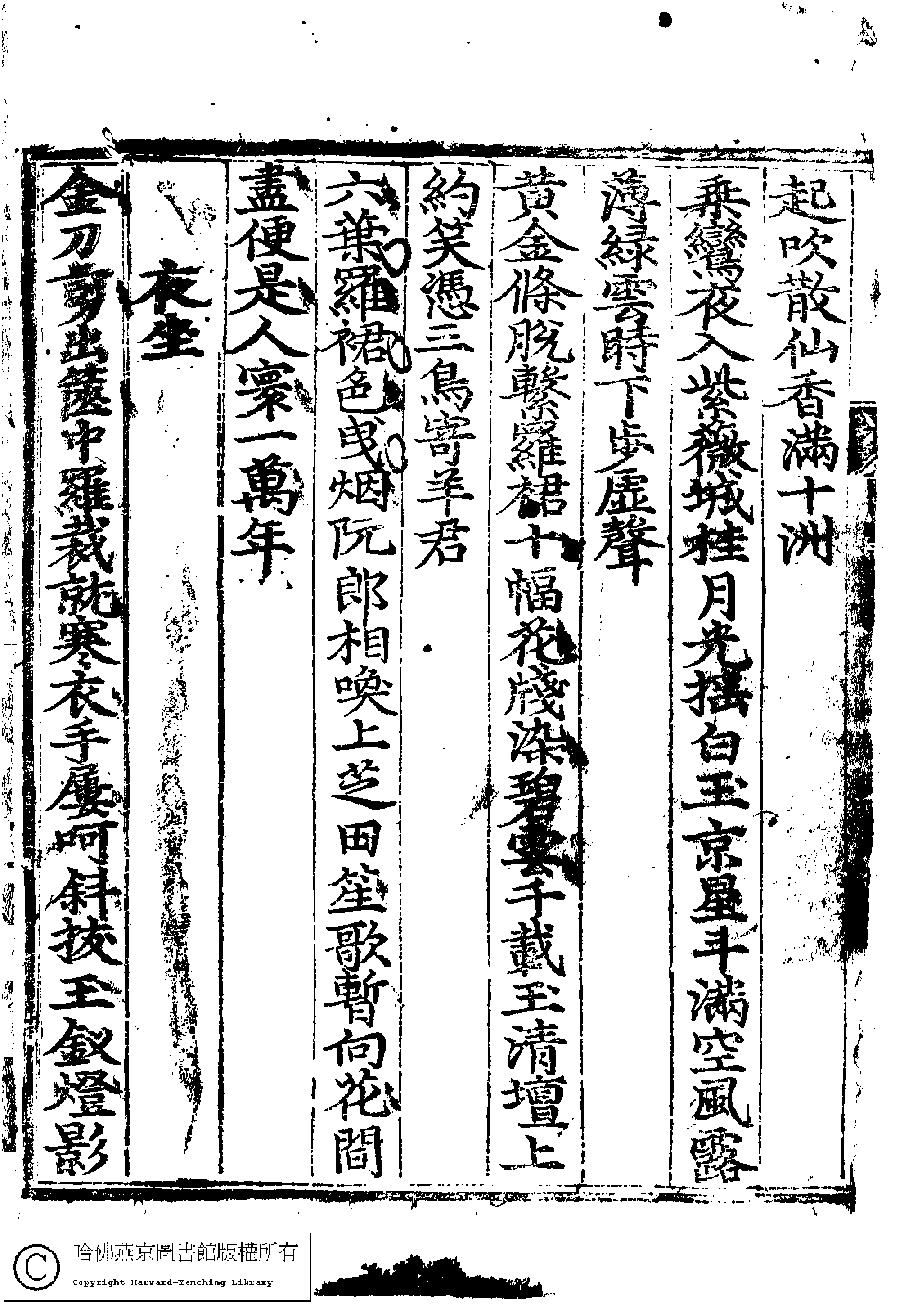 起吹散仙香滿十洲
乗鸞夜入紫薇城桂月光揺白玉京星斗滿空風露
薄緑雲時下步虛聲
黃金條脫繫羅裙十幅花牋染碧雲千載玉清壇上
約笑憑三鳥寄羊君
六葉羅裙色曳烟阮郎相喚上芝田笙歌暫向花間
盡便是人寰一萬年
夜坐
金刀剪出篋中羅裁就寒衣手屢呵斜拔玉釵燈影
哈佛燕京圖書館版權所有
Copyright Harvard-Yenching Library